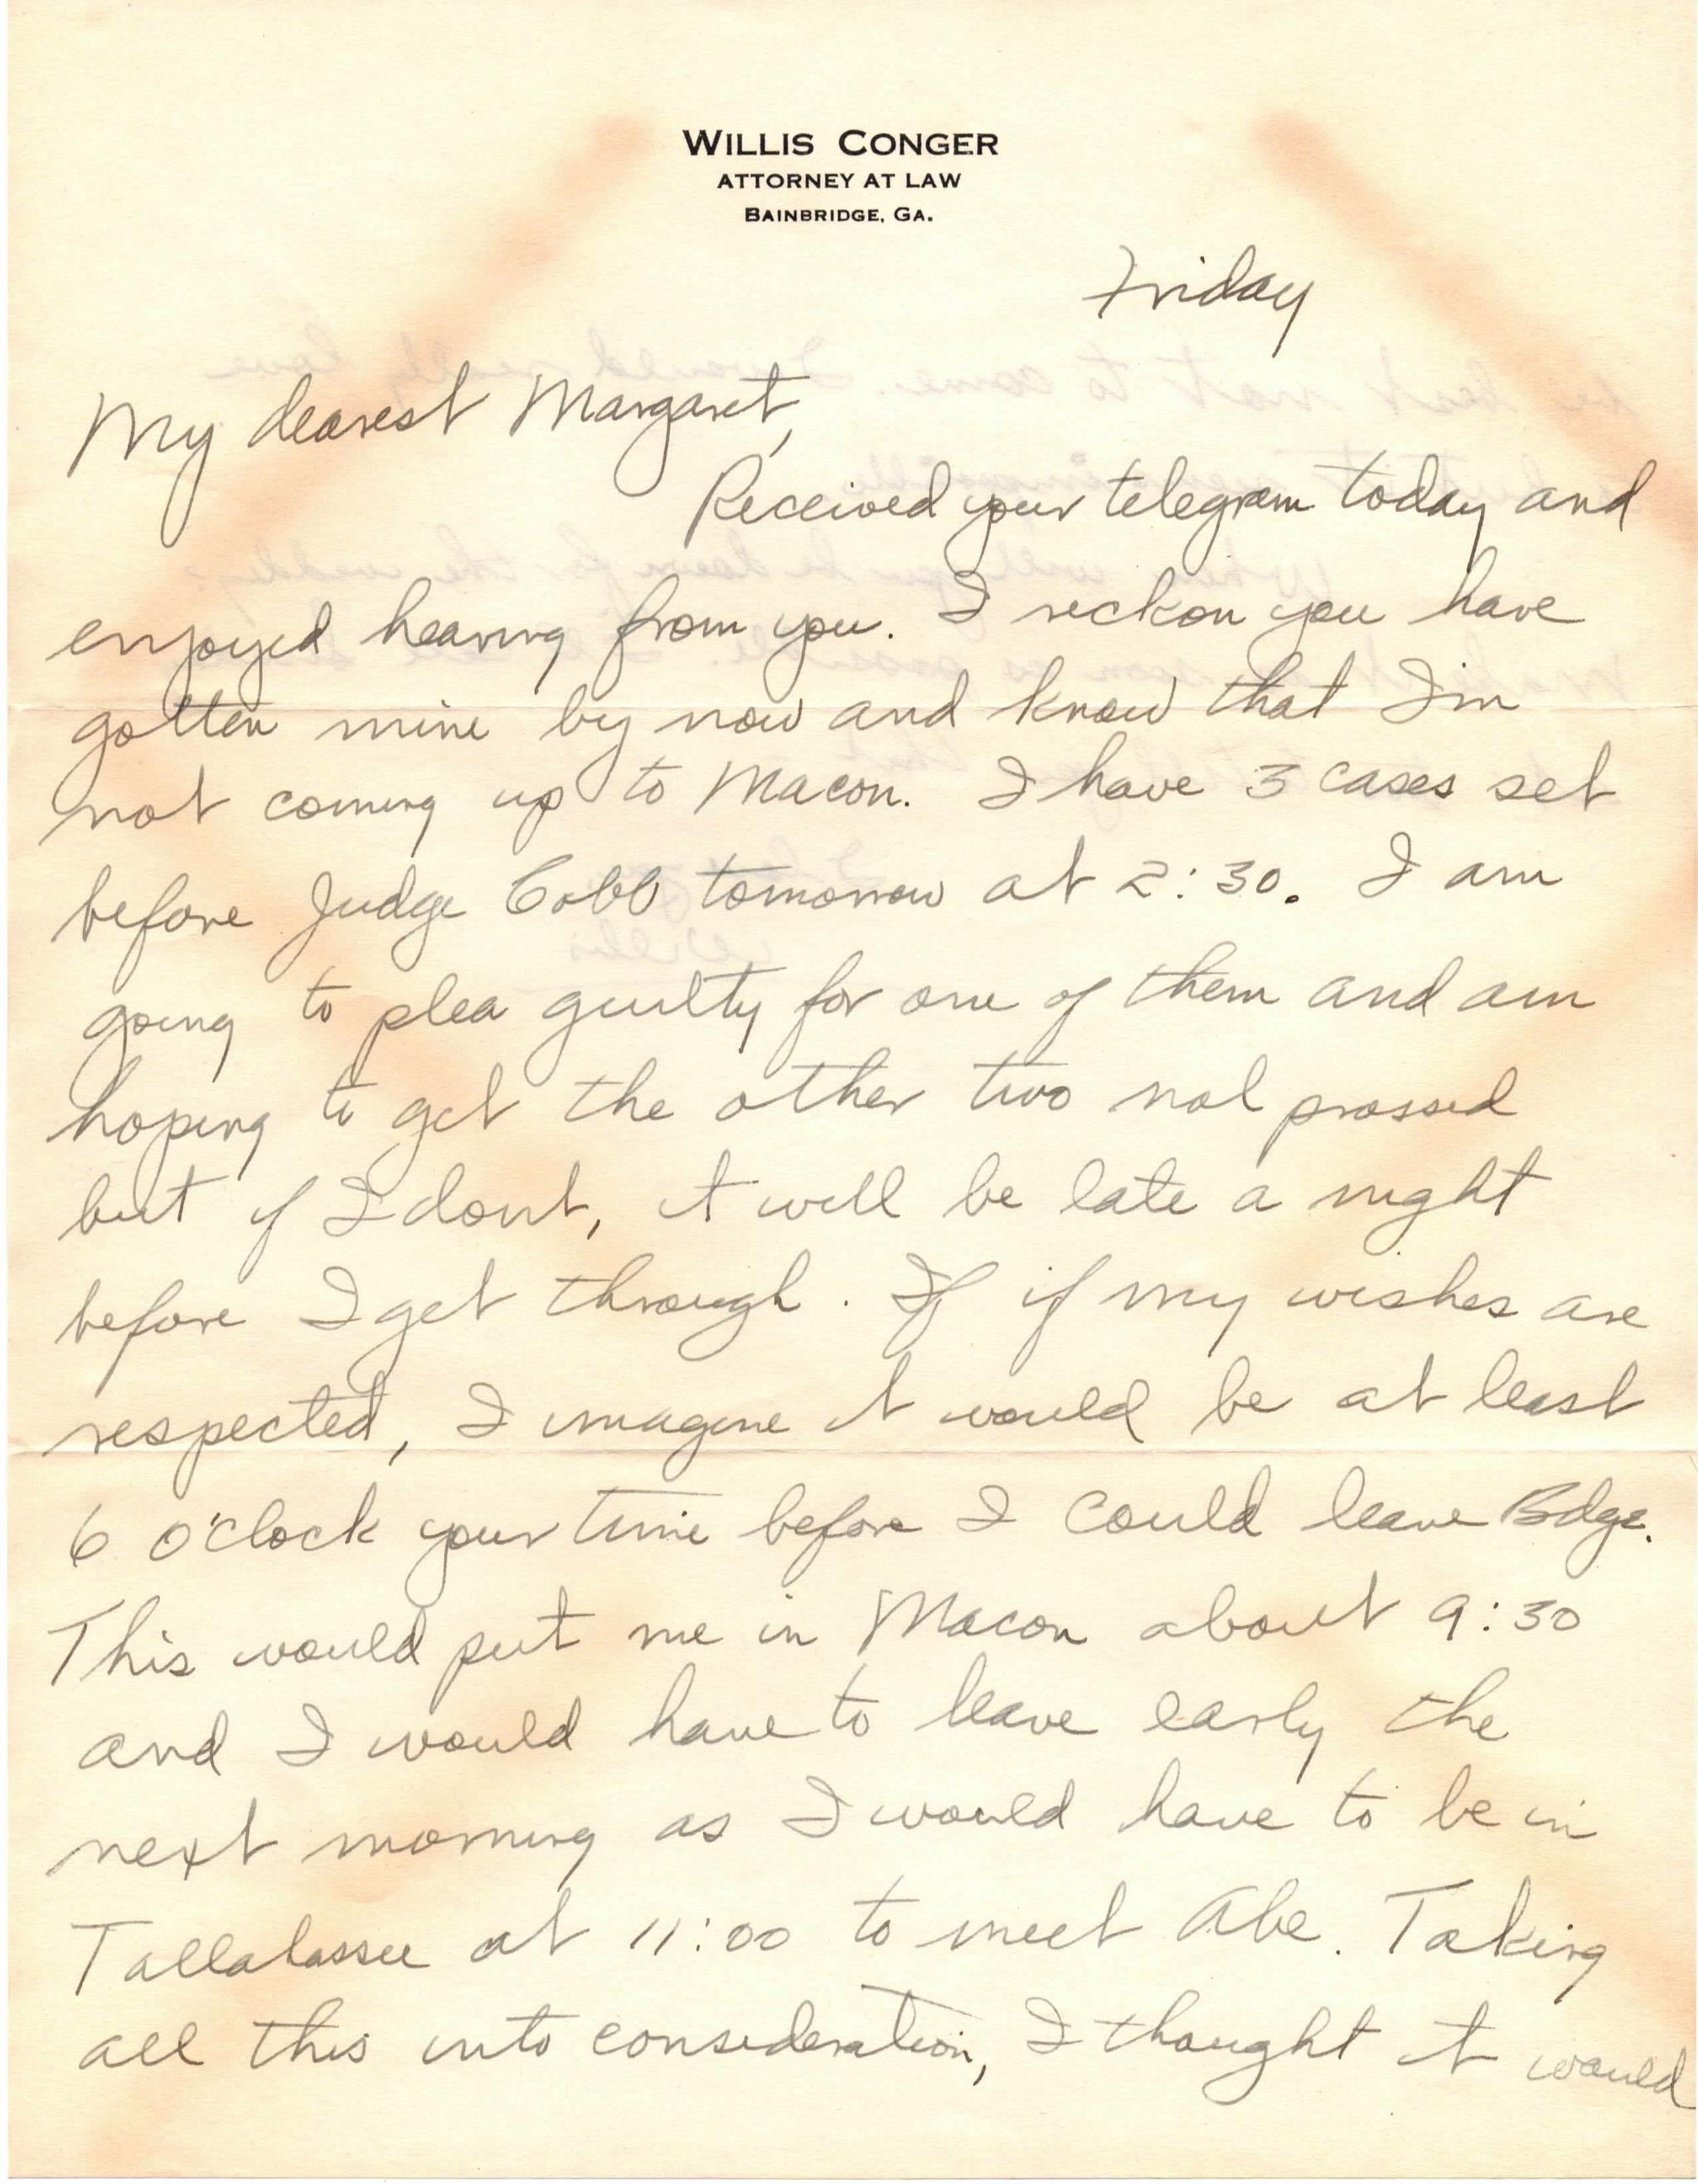 WILLIS CONGER
ATTORNEY AT LAW
BAINBRIDGE, GA.
Friday
My dearest Margaret,
Received your telegram today and
enjoyed hearing from you. I reckon you have
gotten mine by now and know that I'm
not coming up to Macon. I have 3 cases set
before Judge Cobb tomorrow at 2:30. I am
going to plea guilty for one of them and am
hoping to get the other two nol prossed
but if I dont, it will be late a night
before I get through. If if my wishes are
respected, I imagine it would be at least
6 o'clock your time before I could leave Bdge.
This would put me in Macon about 9:30
and I would have to leave early the
next morning as I would have to be in
Tallahassee at 11:00 to meet Abe. Taking
all this into consideration, I thought it would